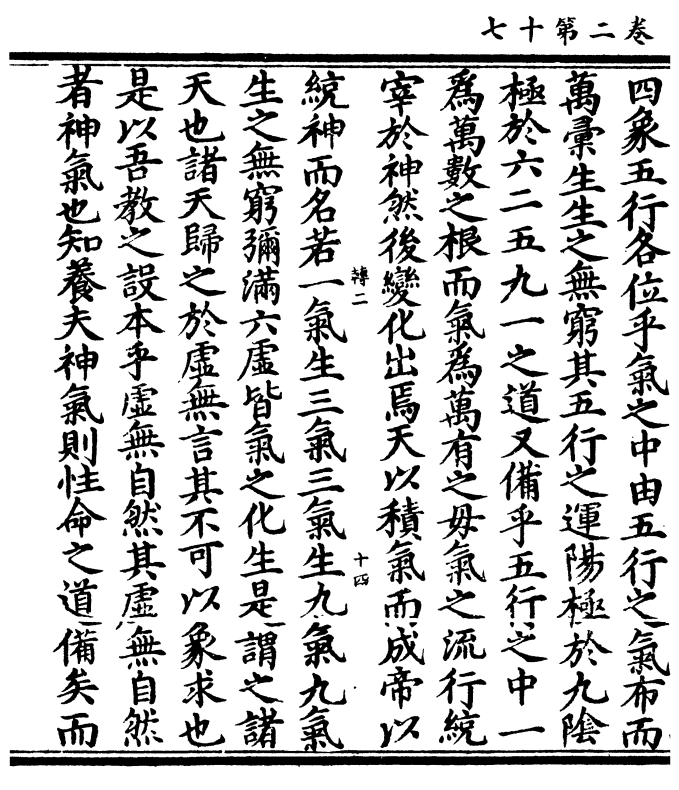 卷二第十七
四象五行各位乎氣之中由五行之氣布而
萬彚生生之無窮其五行之運陽極於九陰
極於六二五九一之道又備乎五行之中一
爲萬數之根而氣爲萬有之母氣之流行統
宰於神然後變化出焉天以積氣而成帝以
轉二
十四
統神而名若一氣生三氣三氣生九氣九氣
生之無窮彌滿六虛皆氣之化生是謂之諸
天也諸天歸之於虛無言其不可以象求也
是以吾教之設本乎虛無自然其虛無自然
者神氣也知養夫神氣則性命之道備矣而